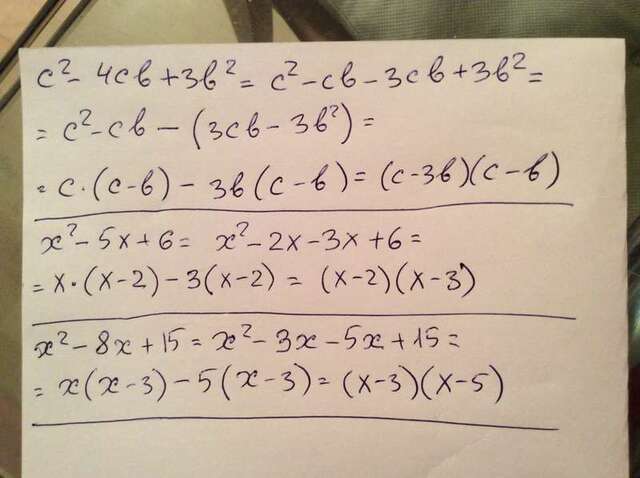 c² - 4cb + 3b² = c² - cb - 3cb + 3b² =
= c² - cb - (3cb - 3b²) =
= c · (c - b) - 3b (c - b) = (c - 3b)(c - b)
x² - 5x + 6 = x² - 2x - 3x + 6 =
= x · (x - 2) - 3(x - 2) = (x - 2)(x - 3)
x² - 8x + 15 = x² - 3x - 5x + 15 =
= x(x - 3) - 5(x - 3) = (x - 3)(x - 5)